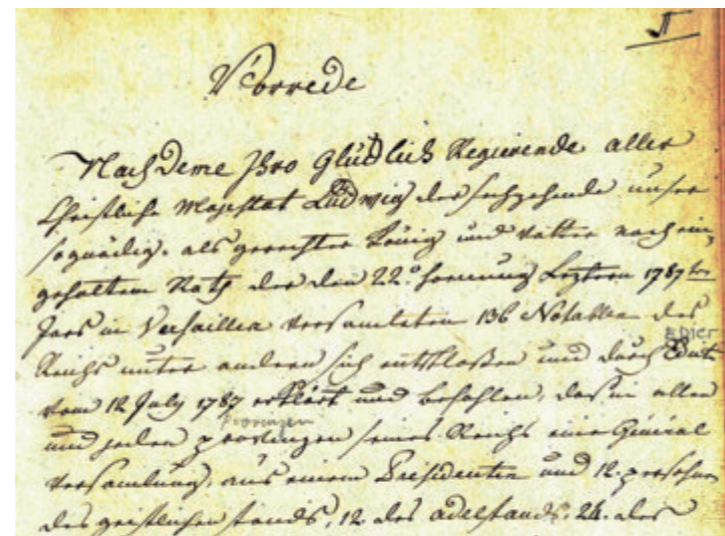 Vorrede
Nach deme Ihro Glücklich Regierende aller
Christliche Majestat Ludwig der sechzehende unser
so gnädig. als gerechter König und Vatter nach ein¬
geholtem Rath der den 22.ᵒ hornung Leztern 1787ten
Jars in Versaillen versamleten 136 Notablen des
Reichs unter andern sich entschloßen und durch Edict
vom 12 July 1787 erklärt und befohlen, das in allen
und jeden provinzen seines Reichs eine General
Versamlung, aus einem Presidenten und 12. persohnen
des geistlichen stands, 12. des adelstands. 24. des